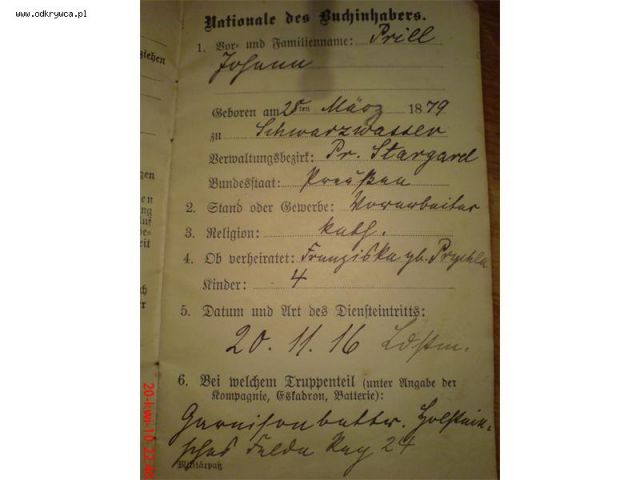 www.odkrywca.pl
Nationale des Buchinhabers.
1. Vor- und Familienname: Prill
Johann
Geboren am 25ten März 1879
zu Schwarzwasser
Verwaltungsbezirk: Pr. Stargard
Bundesstaat: Preußen
2. Stand oder Gewerbe: Vorarbeiter
3. Religion: kath.
4. Ob verheiratet: Franziska gb.
Kinder: 4
5. Datum und Art des Diensteintritts:
20. 11. 16 Ldstm.
6. Bei welchem Truppenteil (unter Angabe der
Kompagnie, Eskadron, Batterie):
Garnisonbattr. Holstein-
sches Felda Reg 24
Militärpaß